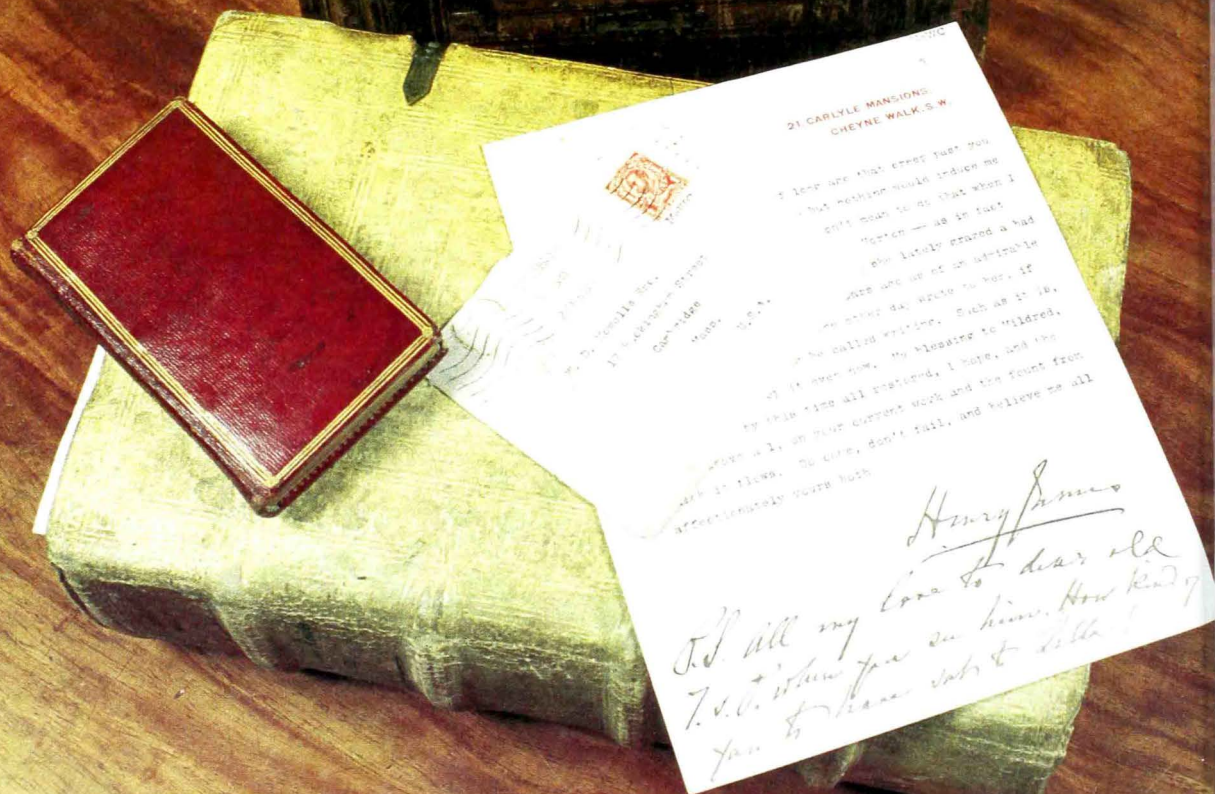 21 CARLYLE MANSIONS,
CHEYNE WALK. S.W.
that you
but nothing would induce me
mean to do that when I
as in fact
she lately graced a had
are as of an admirable
other day wrote to her, if
be called writing. Such as it is,
it even now. My blessing to Mildred,
by this time all restored, I hope, and the
on your current work and the fount from
it flows. Do come, don't fail, and believe me all
affectionately yours both
Henry James
P.S. all my love to dear old
T.S.P. when you see him. How kind of
you to have sat to
D. Howells Esq.
Street
Cambridge
Mass.
U.S.A.